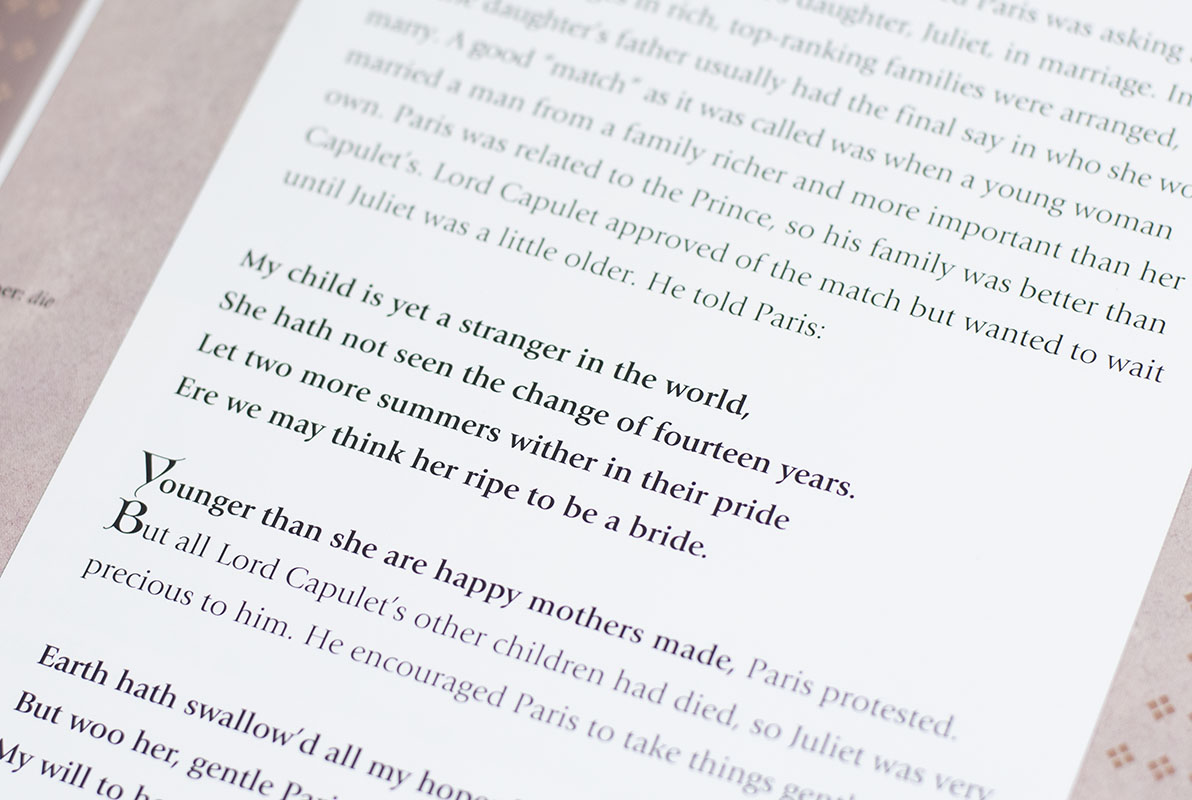 Paris was asking
in rich, top-ranking daughter, Juliet, in marriage. In
daughter's father usually had the final say in who she
families were arranged,
marry. A good "match" as it was called was when a young woman
married a man from a family richer and more important than her
own. Paris was related to the Prince, so his family was better than
Capulet's. Lord Capulet approved of the match but wanted to wait
until Juliet was a little older. He told Paris:
My child is yet a stranger in the world,
She hath not seen the change of fourteen years.
Let two more summers wither in their pride
Ere we may think her ripe to be a bride.
Younger than she are happy mothers made, Paris protested.
But all Lord Capulet's other children had died, so Juliet was very
precious to him. He encouraged Paris to take things
Earth hath swallow'd all my
But woo her, gentle
My will to
die